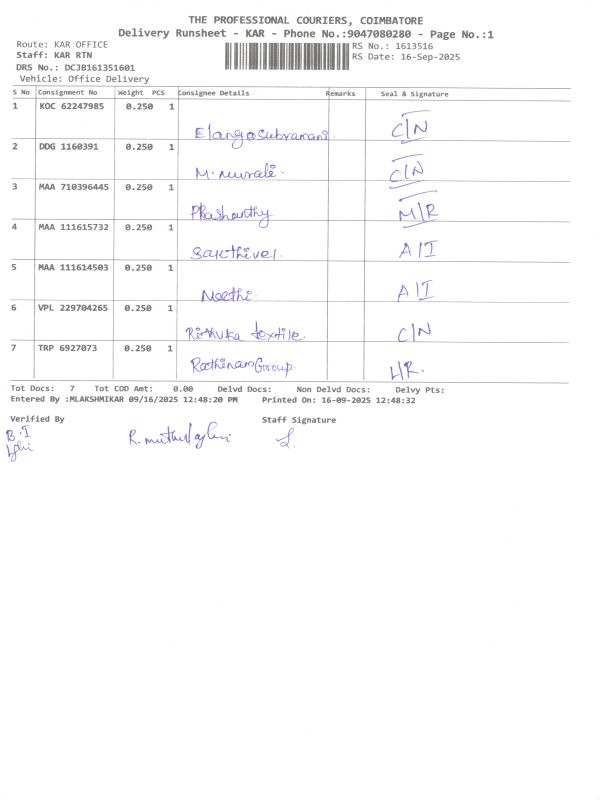 THE PROFESSIONAL COURIERS, COIMBATORE
Delivery Runsheet - KAR - Phone No.:9047080280 - Page No.:1
Route: KAR OFFICE RS No.: 1613516
Staff: KAR RTN RS Date: 16-Sep-2025
DRS No.: DCJB161351601
Vehicle: Office Delivery
S No Consignment No Weight PCS Consignee Details Remarks Seal & Signature
1 KOC 62247985 0.250 1
Elangosubramani C/N
2 DDG 1160391 0.250 1
M. Murali. C/N
3 MAA 710396445 0.250 1
Prashanthy M/R
4 MAA 111615732 0.250 1
Sakthivel. A/I
5 MAA 111614503 0.250 1
A/I
6 VPL 229704265 0.250 1
Rithvka textile. C/N
7 TRP 6927073 0.250 1
Rathinam Group.
Tot Docs: 7 Tot COD Amt: 0.00 Delvd Docs: Non Delvd Docs: Delvy Pts:
Entered By :MLAKSHMIKAR 09/16/2025 12:48:20 PM Printed On: 16-09-2025 12:48:32
Verified By Staff Signature
B.I